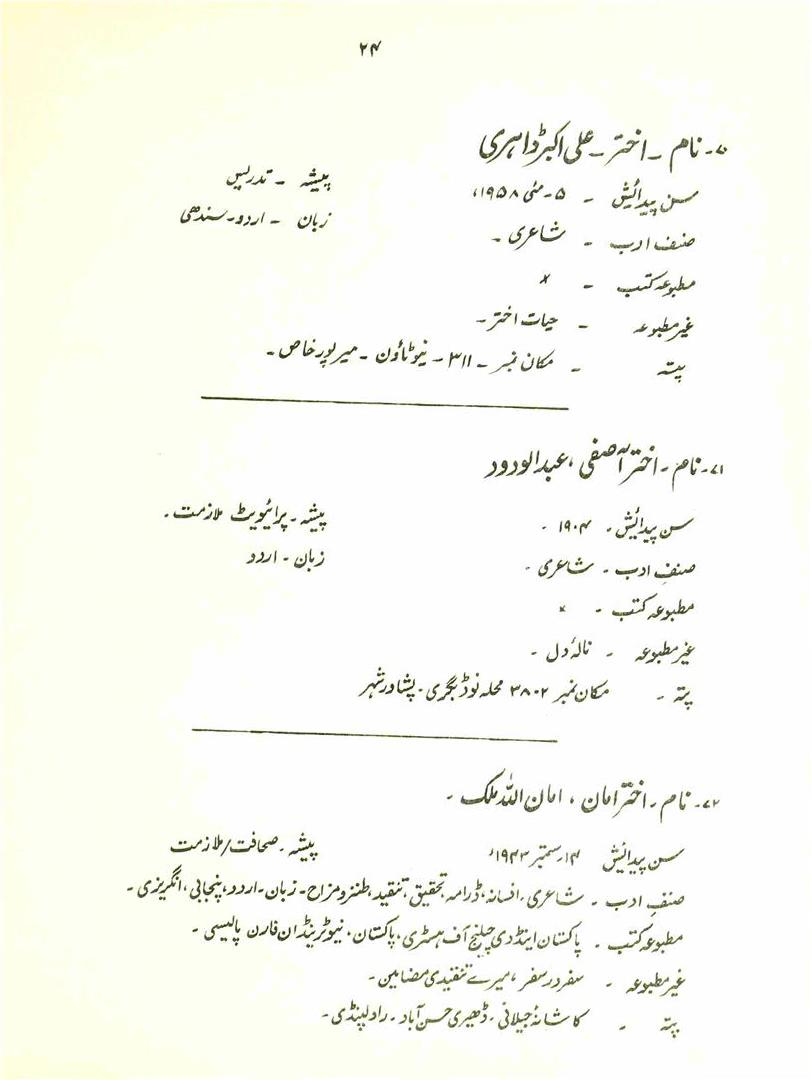 ۲۴
۷۰۔ نام ۔ اختر ۔ علی اکبر ڈاہری
سن پیدائش ۔ ۵۔مئی ۱۹۵۸ء پیشہ ۔ تدریس
صنف ادب ۔ شاعری ۔ زبان ۔ اردو۔سندھی
مطبوعہ کتب ۔ x
غیر مطبوعہ ۔ حیات اختر ۔
پتہ ۔ مکان نمبر ۔ ۳۱۱ ۔ نیو ٹاؤن ۔ میرپور خاص ۔
۷۱۔ نام ۔ اختر آصفی ، عبدالودود
سن پیدائش ۔ ۱۹۰۴ ۔ پیشہ ۔ پرائیویٹ ملازمت ۔
صنفِ ادب ۔ شاعری ۔ زبان ۔ اردو
مطبوعہ کتب ۔ x
غیر مطبوعہ ۔ نالۂ دل ۔
پتہ ۔ مکان نمبر ۳۸۰۲ محلہ نوڈیگری ۔ پشاور شہر
۷۲۔ نام ۔ اختر امان ، امان اللہ ملک ۔
سن پیدائش ۱۴۔ستمبر ۱۹۴۳ء پیشہ ۔ صحافت/ملازمت
صنفِ ادب ۔ شاعری، افسانہ، ڈرامہ، تحقیق، تنقید، طنز و مزاح ۔ زبان ۔ اردو، پنجابی، انگریزی ۔
مطبوعہ کتب ۔ پاکستان اینڈ دی چیلنج آف ہسٹری، پاکستان، نیو ٹرینڈ ان فارن پالیسی ۔
غیر مطبوعہ ۔ سفر در سفر ، میرے تنقیدی مضامین ۔
پتہ ۔ کاشانۂ جیلانی ۔ ڈھیری حسن آباد ۔ راولپنڈی ۔